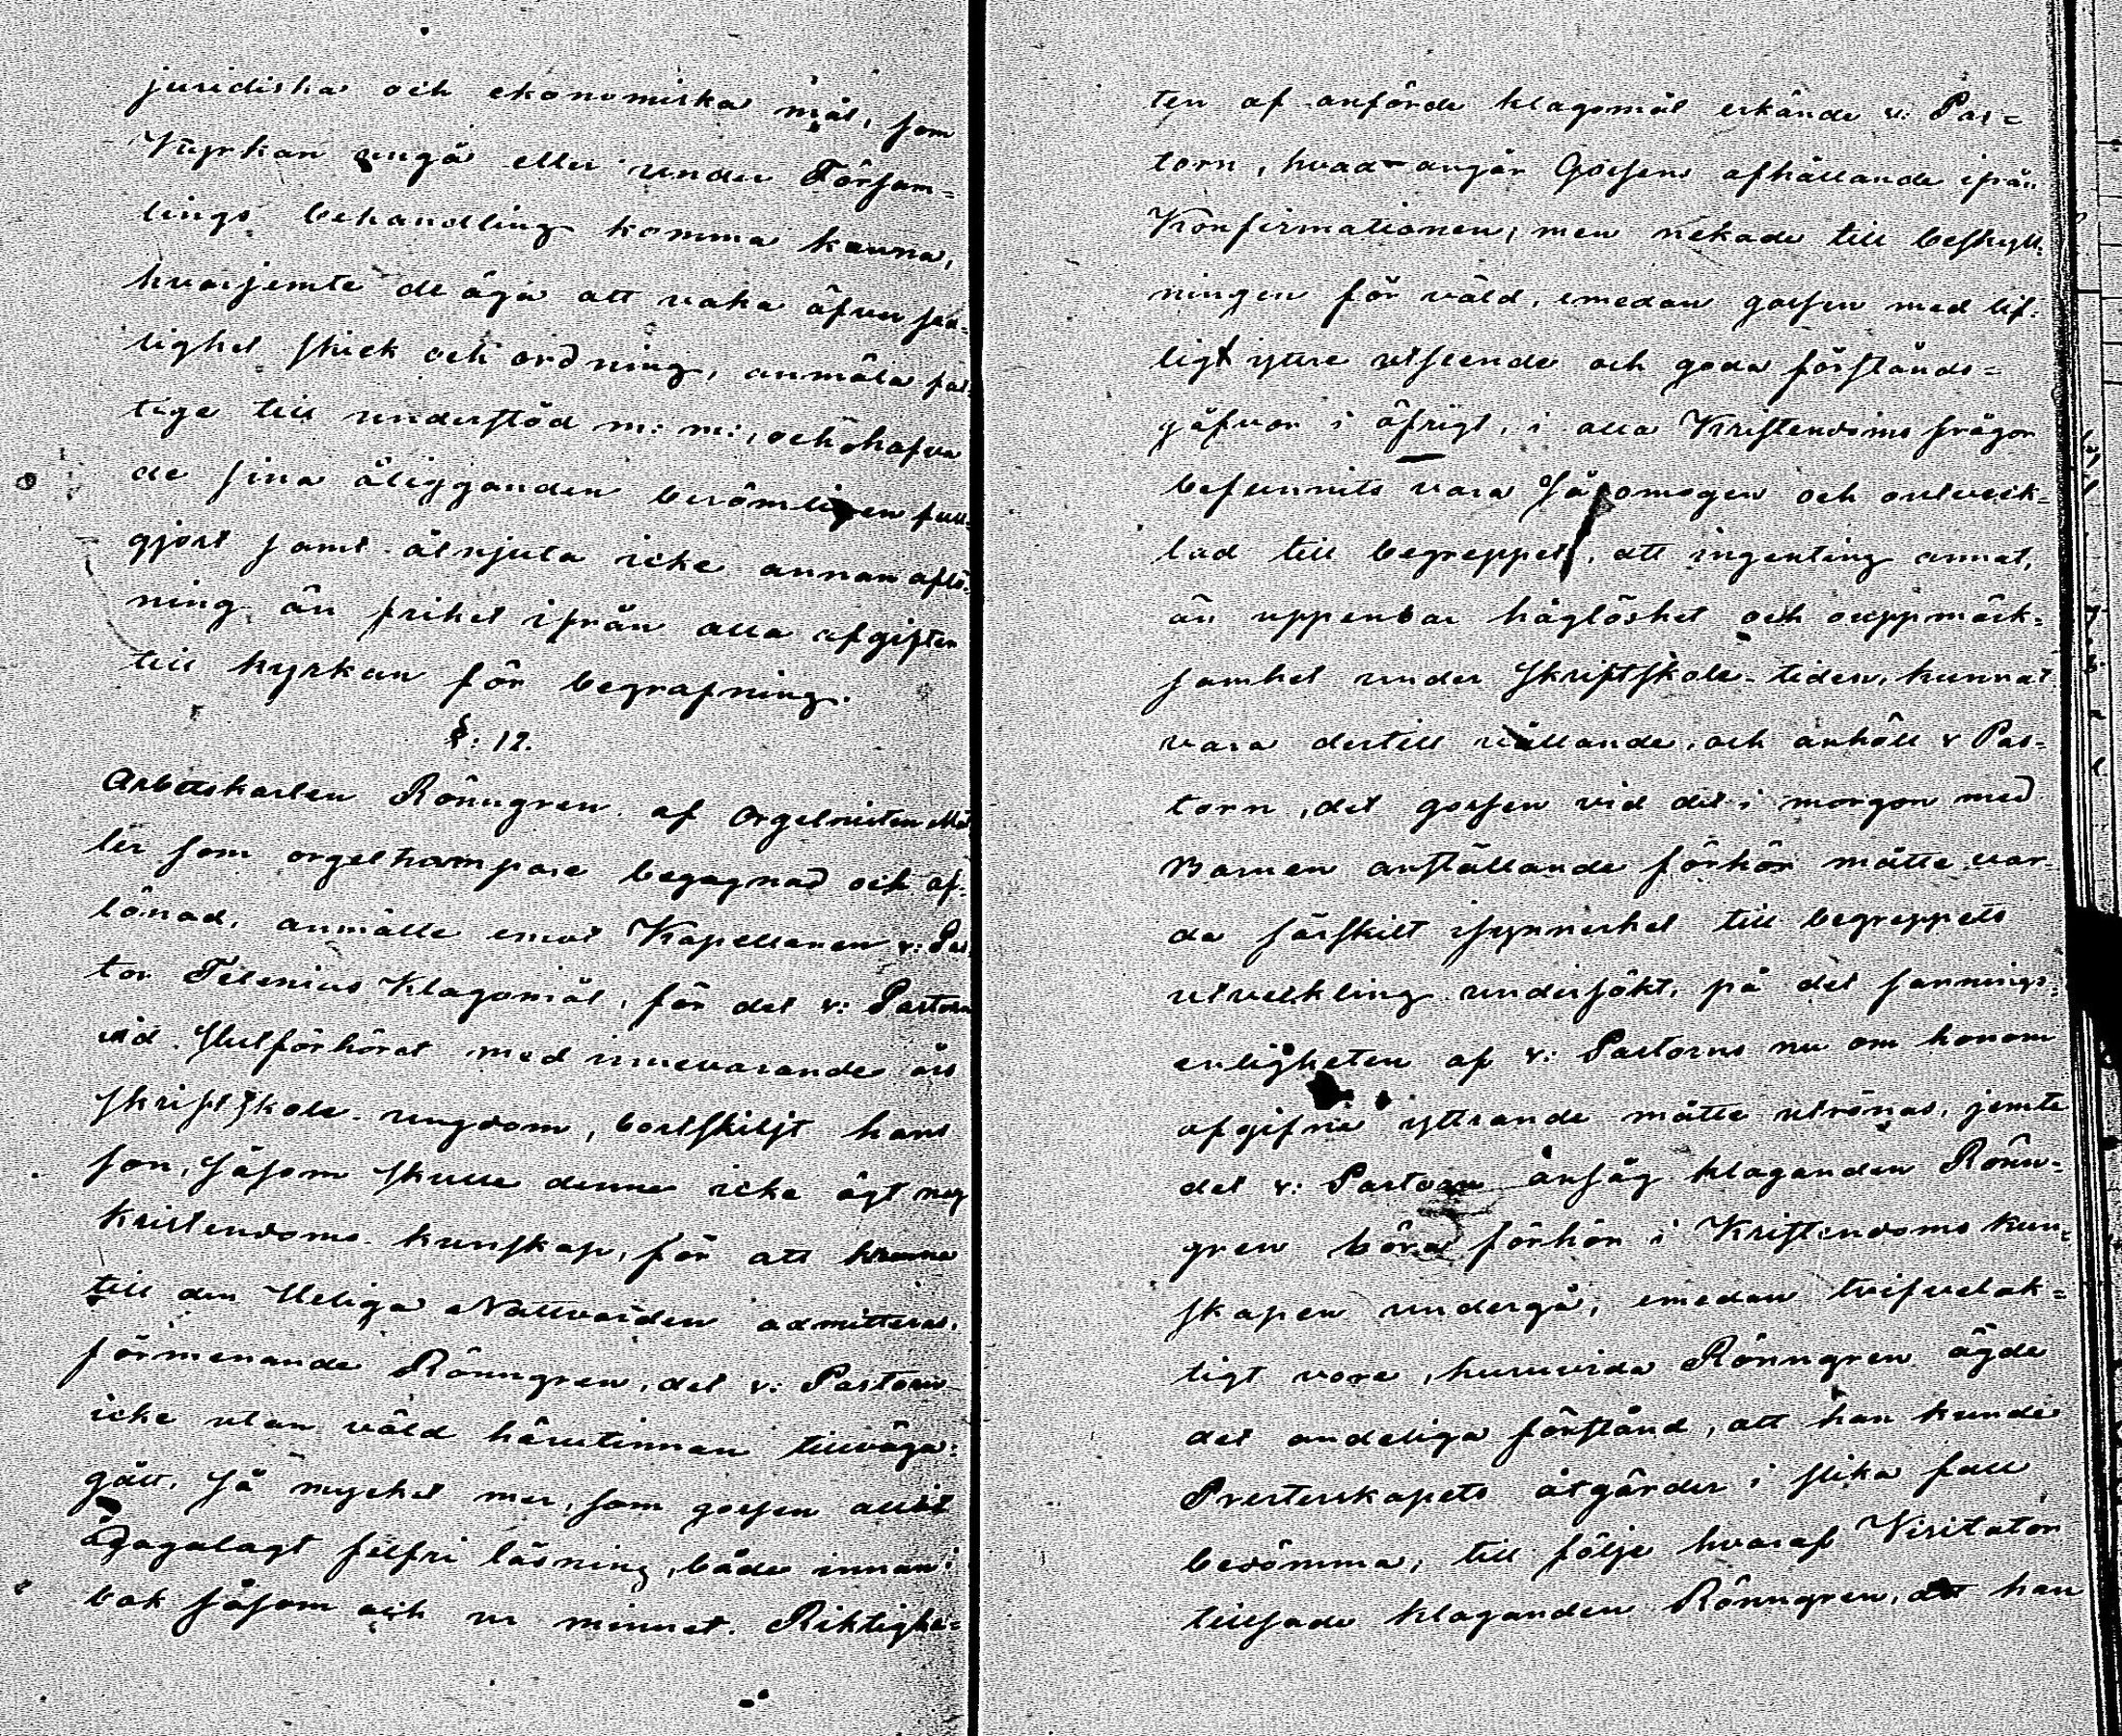 juridiska och ekonomiska mål, som
Kyrkan angå eller under Försam=
lings behandling komma kunna,
hvarjemte de äga att vaka öfver sed=
lighet skick och ordning, anmäla fat=
tige till understöd m: m:, och hafva
de sina åligganden berömligen full=
gjort samt åtnjuta icke annan aflö=
ning än frihet ifrån alla afgifter
till kyrkan för begrafning.
§: 12.
Arbetskarlen Rönngren af Orgelnisten
ler som orgeltrampare begagnad och af=
lönad, anmälte emot Kapellanen v: Pas
tor Telenius Klagomål, för det v: Pastorn
vid Slutförhöret med innevarande års
skriftskole-ungdom, bortskiljt hans
son, såsom skulle denne icke ägt nog
Kristendoms-kunskap, för att kunna
till den Heliga Nattvarden admitteras.
förmenande Rönngren, det v: Pastorn
icke utan våld härutinnan tillväga=
gått, så mycket mer, som gossen alltid
ådagalagt felfri läsning, både innan i
bok såsom och ur minnet. Riktighe=
ten af anförde klagomål erkände v: Pas=
torn, hvad angår Gossens afhållande ifrån
Konfirmationen; men nekade till beskyll=
ningen för våld, emedan gossen med lif=
ligt yttre utseende och goda förstånds=
gåfvor i öfrigt, i alla Kristendoms frågor
befunnits vara så omogen och outveck=
lad till begreppet, att ingenting annat,
än uppenbar håglöshet och ouppmärk=
samhet under Skriftskole-tiden, kunnat
vara dertill vållande, och anhöll v Pas=
torn, det gossen vid det i morgon med
Barnen anställande förhör måtte var=
da särskilt isynnerhet till begreppets
utveckling undersökt, på det sannings=
enligheten af v: Pastorns nu om honom
afgifne yttrande måtte utrönas, jemte
det v: Pastorn ansåg klaganden Rönn=
gren böra förhör i Kristendoms kun=
skapen undergå, emedan tvifvelak=
tigt vore, huruvida Rönngren ägde
det andeliga förstånd, att han kunde
Presterskapets åtgärder i slika fall
bedömma; till följe hvaraf Visitator
tillsade klaganden Rönngren, att han